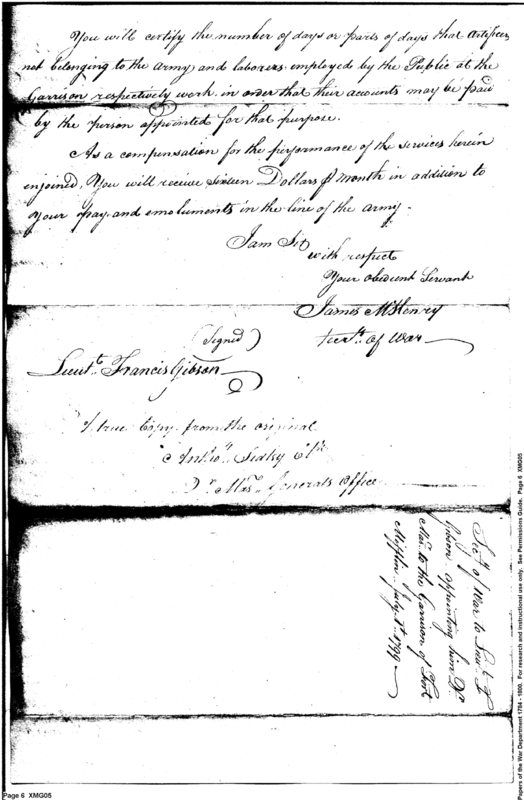 You will certify the number of days or parts of days that artificers
not belonging to the Army and laborers employed by the Public at the
Garrison respectively work in order that their accounts may be paid
by the person appointed for that purpose.
As a compensation for the performance of the services herein
enjoined, You will receive sixteen Dollars ⅌ month in addition to
Your pay and emoluments in the line of the army.
I am Sir
with respect
Your obedient Servant
James McHenry
(Signed)
Secy. of War
Lieut. Francis Gibson
A true Copy from the original
Clk.
Qr. Mr. Generals Office
Secy. of War to Lieut. F
Gibson appointing him Qr.
Mas. to the Garrison of Fort
Mifflin July 1t. 1799
Page 6 XMG05
Papers of the War Department 1784 - 1800. For research and instructional use only. See Permissions Guide. Page 6 XMG05